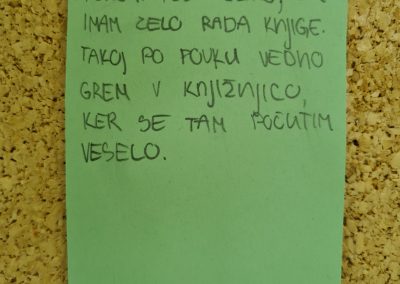 IMAM ZELO RADA KNJIGE.
TAKOJ PO POUKU VEDNO
GREM V KNJIŽNJICO,
KER SE TAM POČUTIM
VESELO.